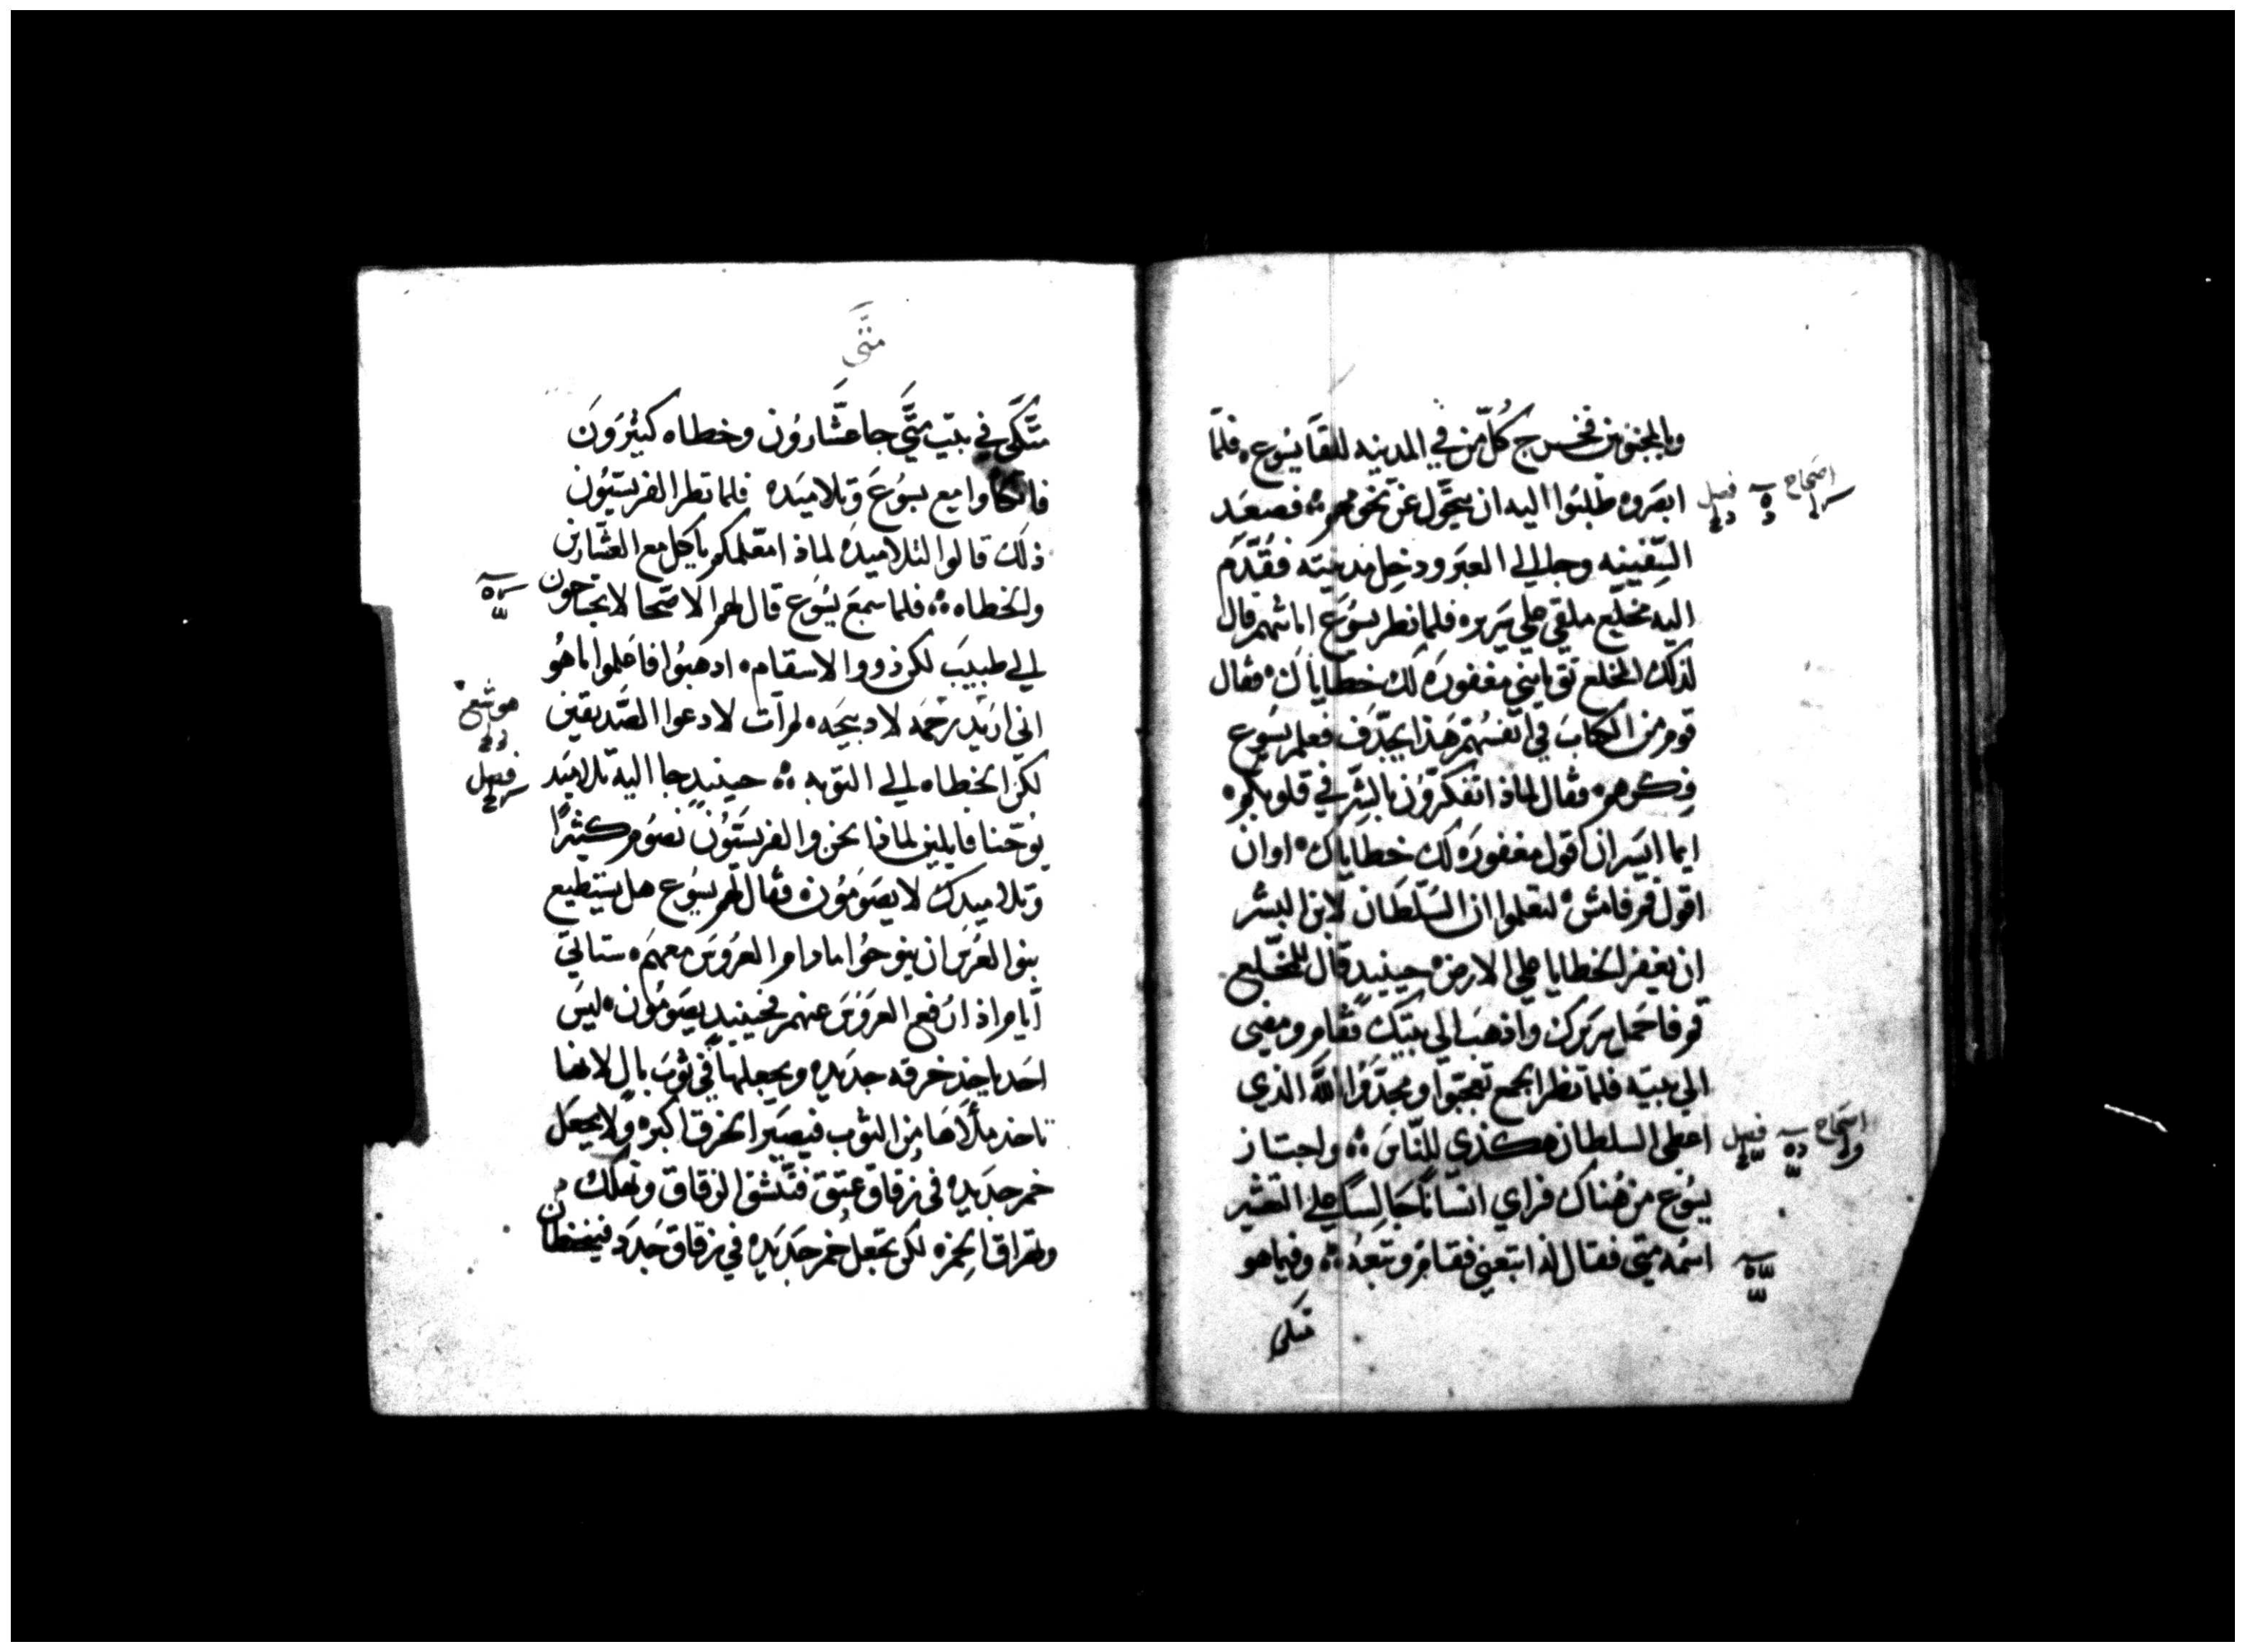 وبالمجنونين فخرج كُلّ من في المدينه للقا يَسُوع ، فلمّا
ابصَروه طلبَوا اليه ان يتحَّول عَن تخومهم ፨ فصعَد
السّفينه وجا الي العبَر ودخِل مدينته فقُدَّمَ
اليه مخلّع ملقي علي سَريره فلما نظر يسَوُع امانتهم قال
لذلك المخلع ثق يابني مغفوره لك خطاياك ، فقال
قوم من الكتابَ في انفسُهم هَذا يجدّف فعلم يَسوع
فِكرهم ، فقال لماذا تفكروُن بالشّر في قلوبكم ،
ايما ايسَر ان اقول مغفوره لك خطاياك ، او ان
اقول قم فامش ، لتعلموا ان السُلّطان لابن البشر
ان يغفر الخطايا علي الارض ، حينيدٍ قال للمخّلع
قم فاحمَل سَريرك واذهبَ الي بيتك فقام ومضي
الي بيته فلما نظر الجمع تعجّبَوا ومجدّوُا اللَّه الذي
اعطي السلطان هكذي للنّاسَ ፨ واجتاز
يسُوع من هُناك فراي انسَاناً جَالِسَا علي التعشير
اسمُه متي فقال له اتبعني فقامَ وتبعَهُ ፨ وفيما هو
متكي
اصَحاح
فصل
اصَحاح
فصل
متَّى
متَّكَّى في بيَت متَّي جا عشَّاروُن وخطاه كثيرُونَ
فاتكاوا مع يسوُعَ وتلاميَده فلما نظر الفريسيُون
ذلك قالوا لتلاميدهُ لماذا معَلمكم ياكل مع العشارين
والخطاه ፨ فلما سمعَ يسُوَع قال لهم الاصّحا لا يحتاجون
الي طبيبَ لكن ذووا الاسقام ، ادهبَوُا فاعَلموا ما هُو
اني اريَد رَحمَه لا دبيحَه ، لم اَت لادعوا الصَّديقين
لكنّ الخطاه الي التوبه ፨ حينيدٍ جا اليه تلاميَد
يوُحّنا قايلين لماذا نحن والفريسَيُون نصَوُم كثيرًا
وتلاميدك لا يصَومُون ، فقال لهم يسَوُع هل يستطيع
بنوا العُرسَ ان ينوحُوا مادام العُروسَ معهم ، ستاتي
اَيام اذا ارُفع العَروسَ عنهم فحينيدٍ يصَومُون ، ليسَ
احَد ياخد خرقه جدَيده ويجعلها في ثوبَ بالٍ لانها
تاخد ملأَهَا مِن الثوب فيصَير الخرق اكبر ، ولا يجعَل
خمر جدَيده في زقاق عتيق فتنشق الزقاق وتهلك
وتهراق الخمره لكن تجعل خمر جدَيَده في زقاق جدَد فيتحفظان
هوشع
فصل